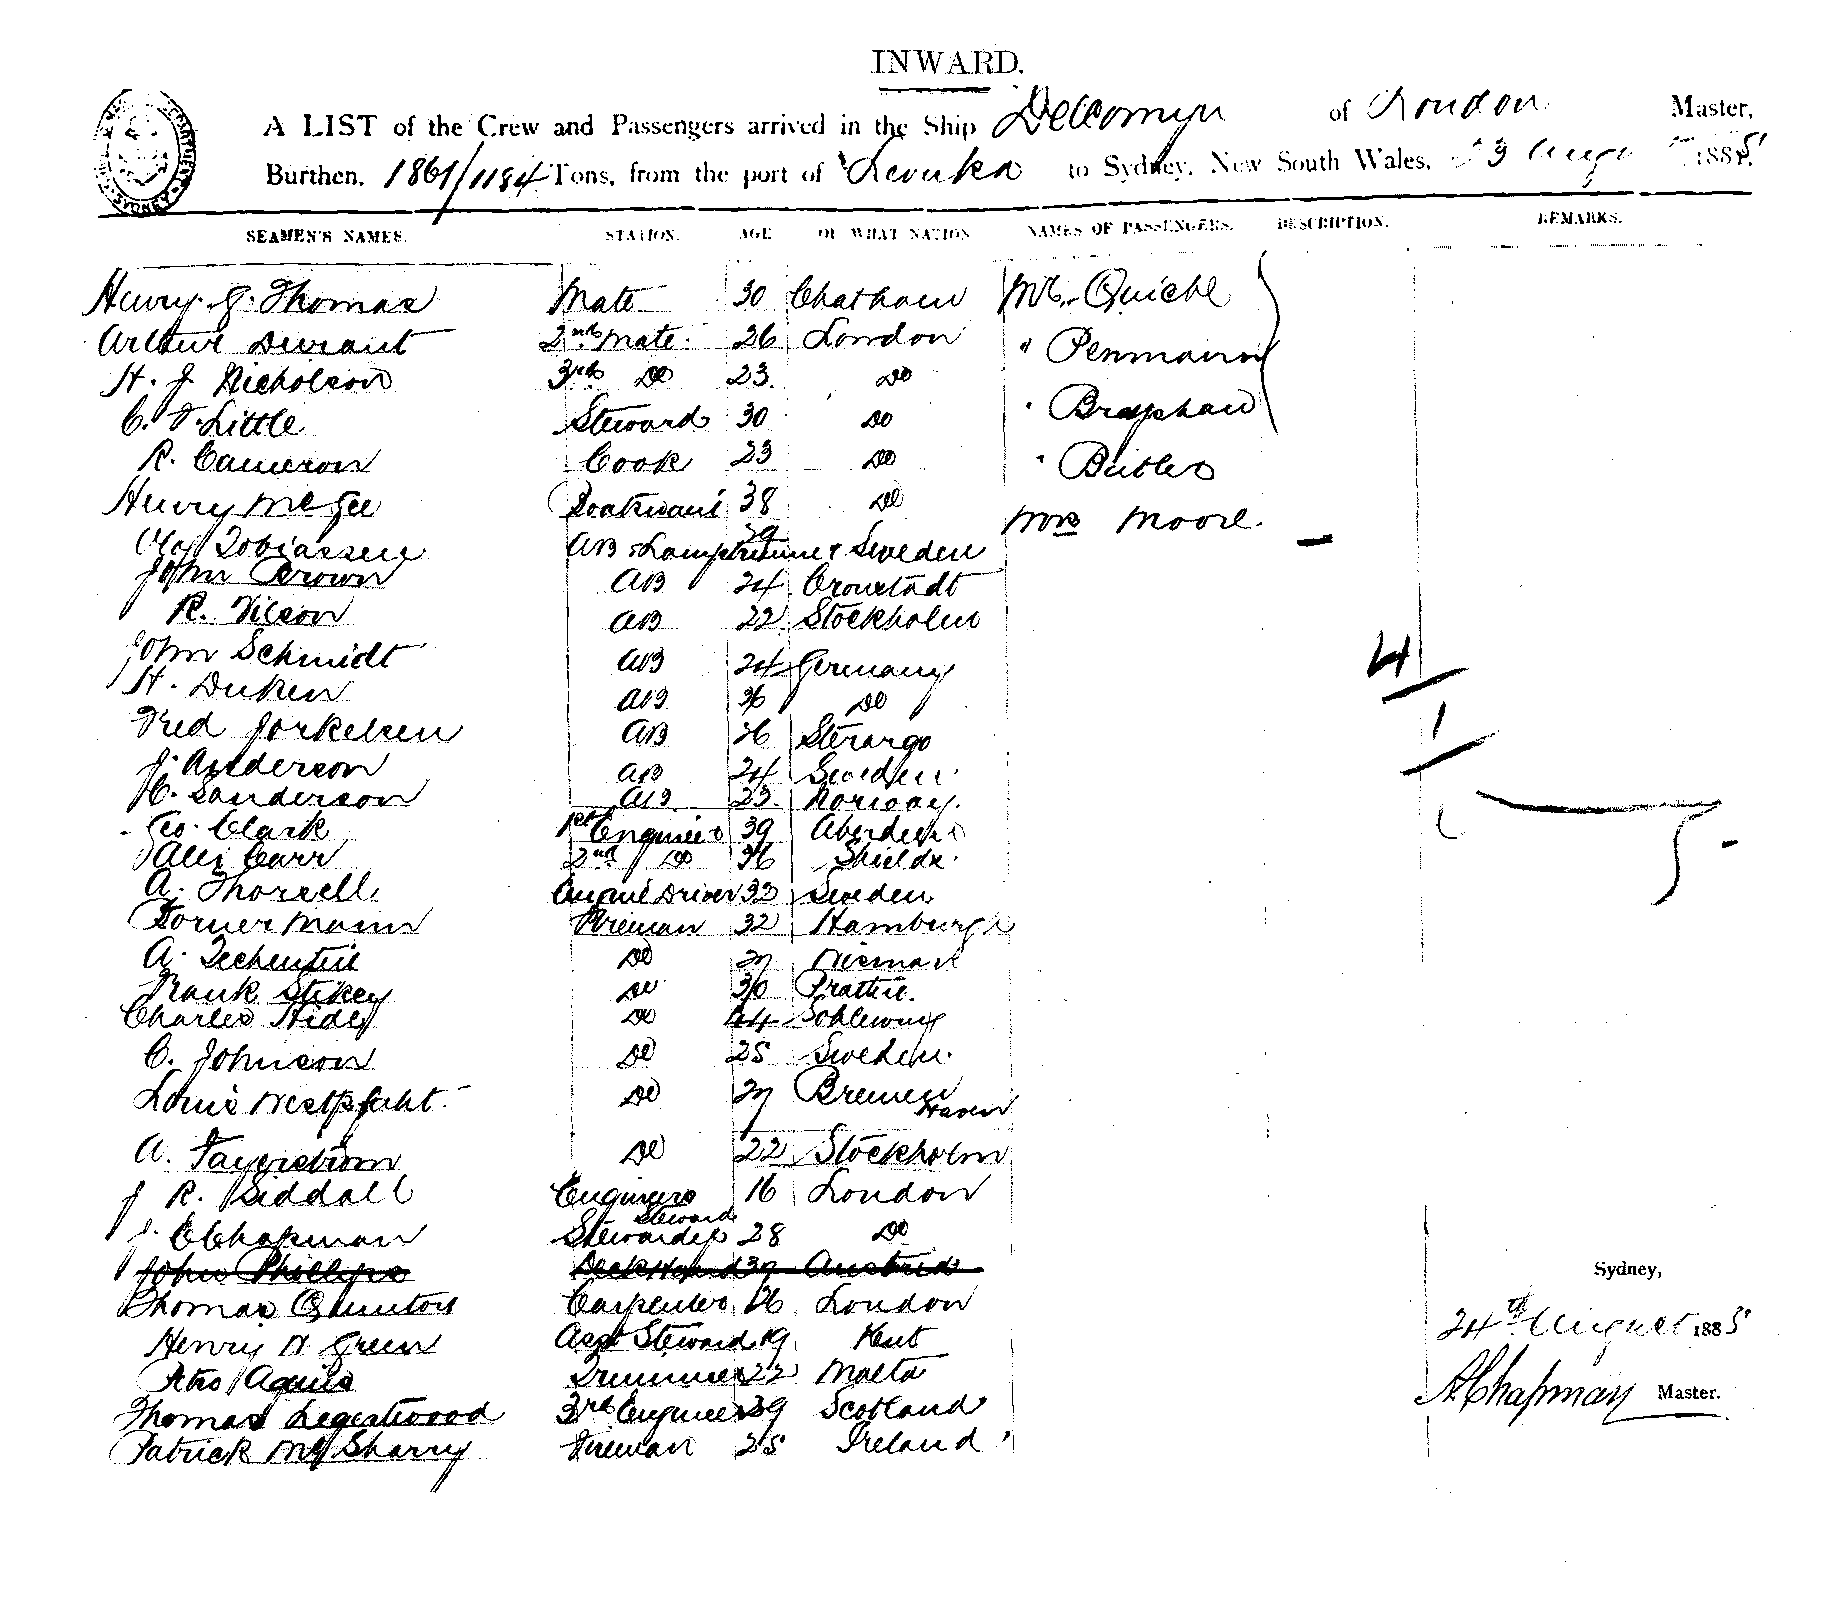 INWARD.
A LIST of the Crew and Passengers arrived in the Ship Dellcomyn of London Master,
Burthen, 1861/1184 Tons, from the port of Levuka to Sydney, New South Wales, 23 Aug 1885
SEAMEN'S NAMES. STATION. AGE OF WHAT NATION NAMES OF PASSENGERS. DESCRIPTION. REMARKS.
Henry J. Thomas Mate 30 Chatham Mr. Quiché
Arthur Durant 2nd Mate. 26 London " Penmairon
H. J Nicholson 3rd Do 23. Do
C. F. Little Steward 30 Do " Brasphaw
R. Cameron Cook 23 Do " Butler
Henry McGee Boatswain 38 Do
Mrs Moore.
Olaf Tobiassen AB & Lamptrimmer 29 Sweden
John Brown AB 24 Cronstadt
R. Nilson AB 22 Stockholm
John Schmidt AB 24 Germany
H. Duken AB 36 Do
4
Fred Jorkelsen AB 26
1
J. Anderson AB 24 Sweden.
C. Sanderson AB 23. Norway.
Geo. Clark 1st Engineer 39 Aberdeen
Alex Carr 2nd Do 36 Shields.
5
A. Thorsell Engine Driver 32 Sweden
Dornermann Fireman 32 Hamburgh
A. Do 27 Wismar
Frank Stikey Do 30
Charles Hidey Do 44 Schleswig
C. Johnson Do 25 Sweden.
Louis Westpfaht. Do 27 Bremen Haven
A. Fagerstrom Do 22 Stockholm
J R. Siddall Engineers Steward 16 London
J. E Chapman Stewardess 28 Do
John Phillips Deck Hand 37
Sydney,
Thomas Quinton Carpenter 26 London
24th August 1885
Henry W Green Asst Steward 19 Kent
Trimmer 22 Malta
A Chapman Master.
Thomas Legertwood 3rd Engineer 39 Scotland
Patrick McSharry Fireman 25 Ireland